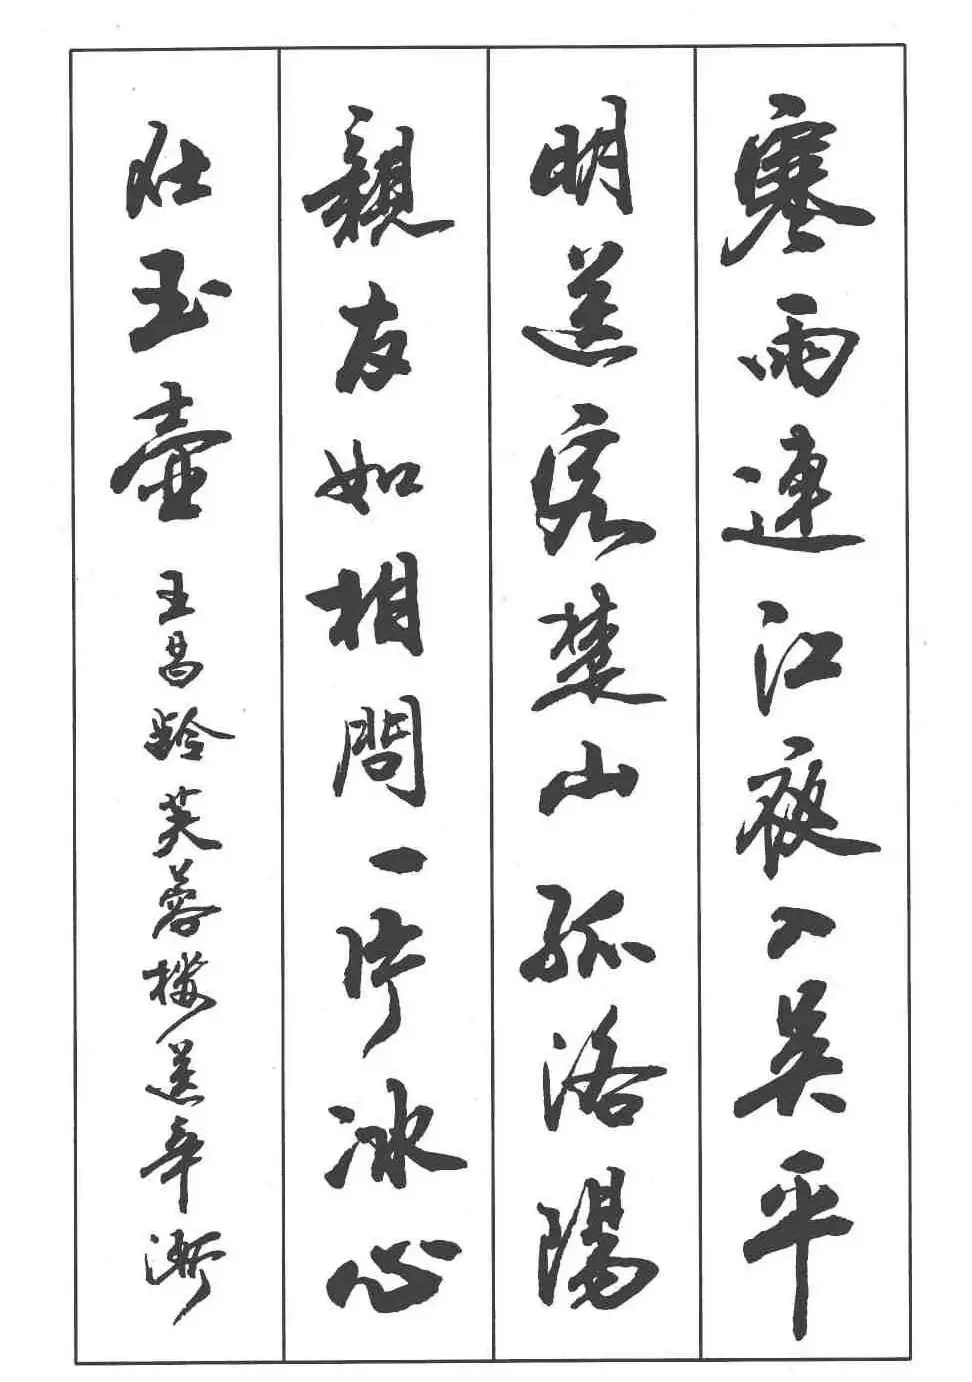 寒雨連江夜入吳平
明送客楚山孤洛陽
親友如相問一片冰心
在玉壺 王昌齡芙蓉樓送辛漸